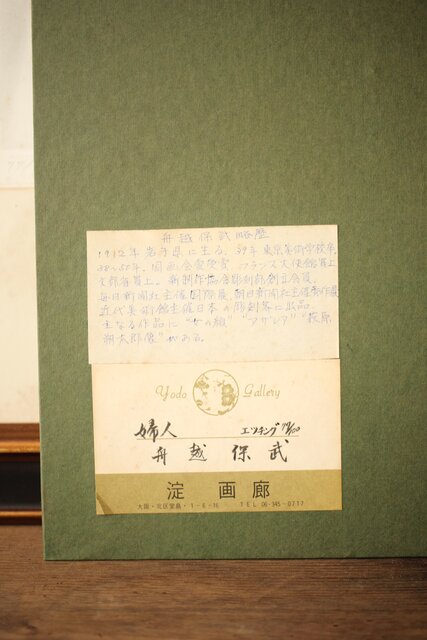 舟越保武略歴
1912年岩手県に生る。39年東京美術学校卒。
38〜55年。国画会受賞 フランス大使館買上
文部省買上。新制作協会彫刻部創立会員。
毎日新聞社主催国際展、朝日新聞社主催秀作展
近代美術館主催日本の彫刻等に出品。
主なる作品に"女の顔" "アザレア" "萩原
朔太郎像"がある。
Yodo Gallery
婦人 エッチング
舟越保武
淀画廊
大阪・北区堂島・1-6-16 TEL 06-345-0717